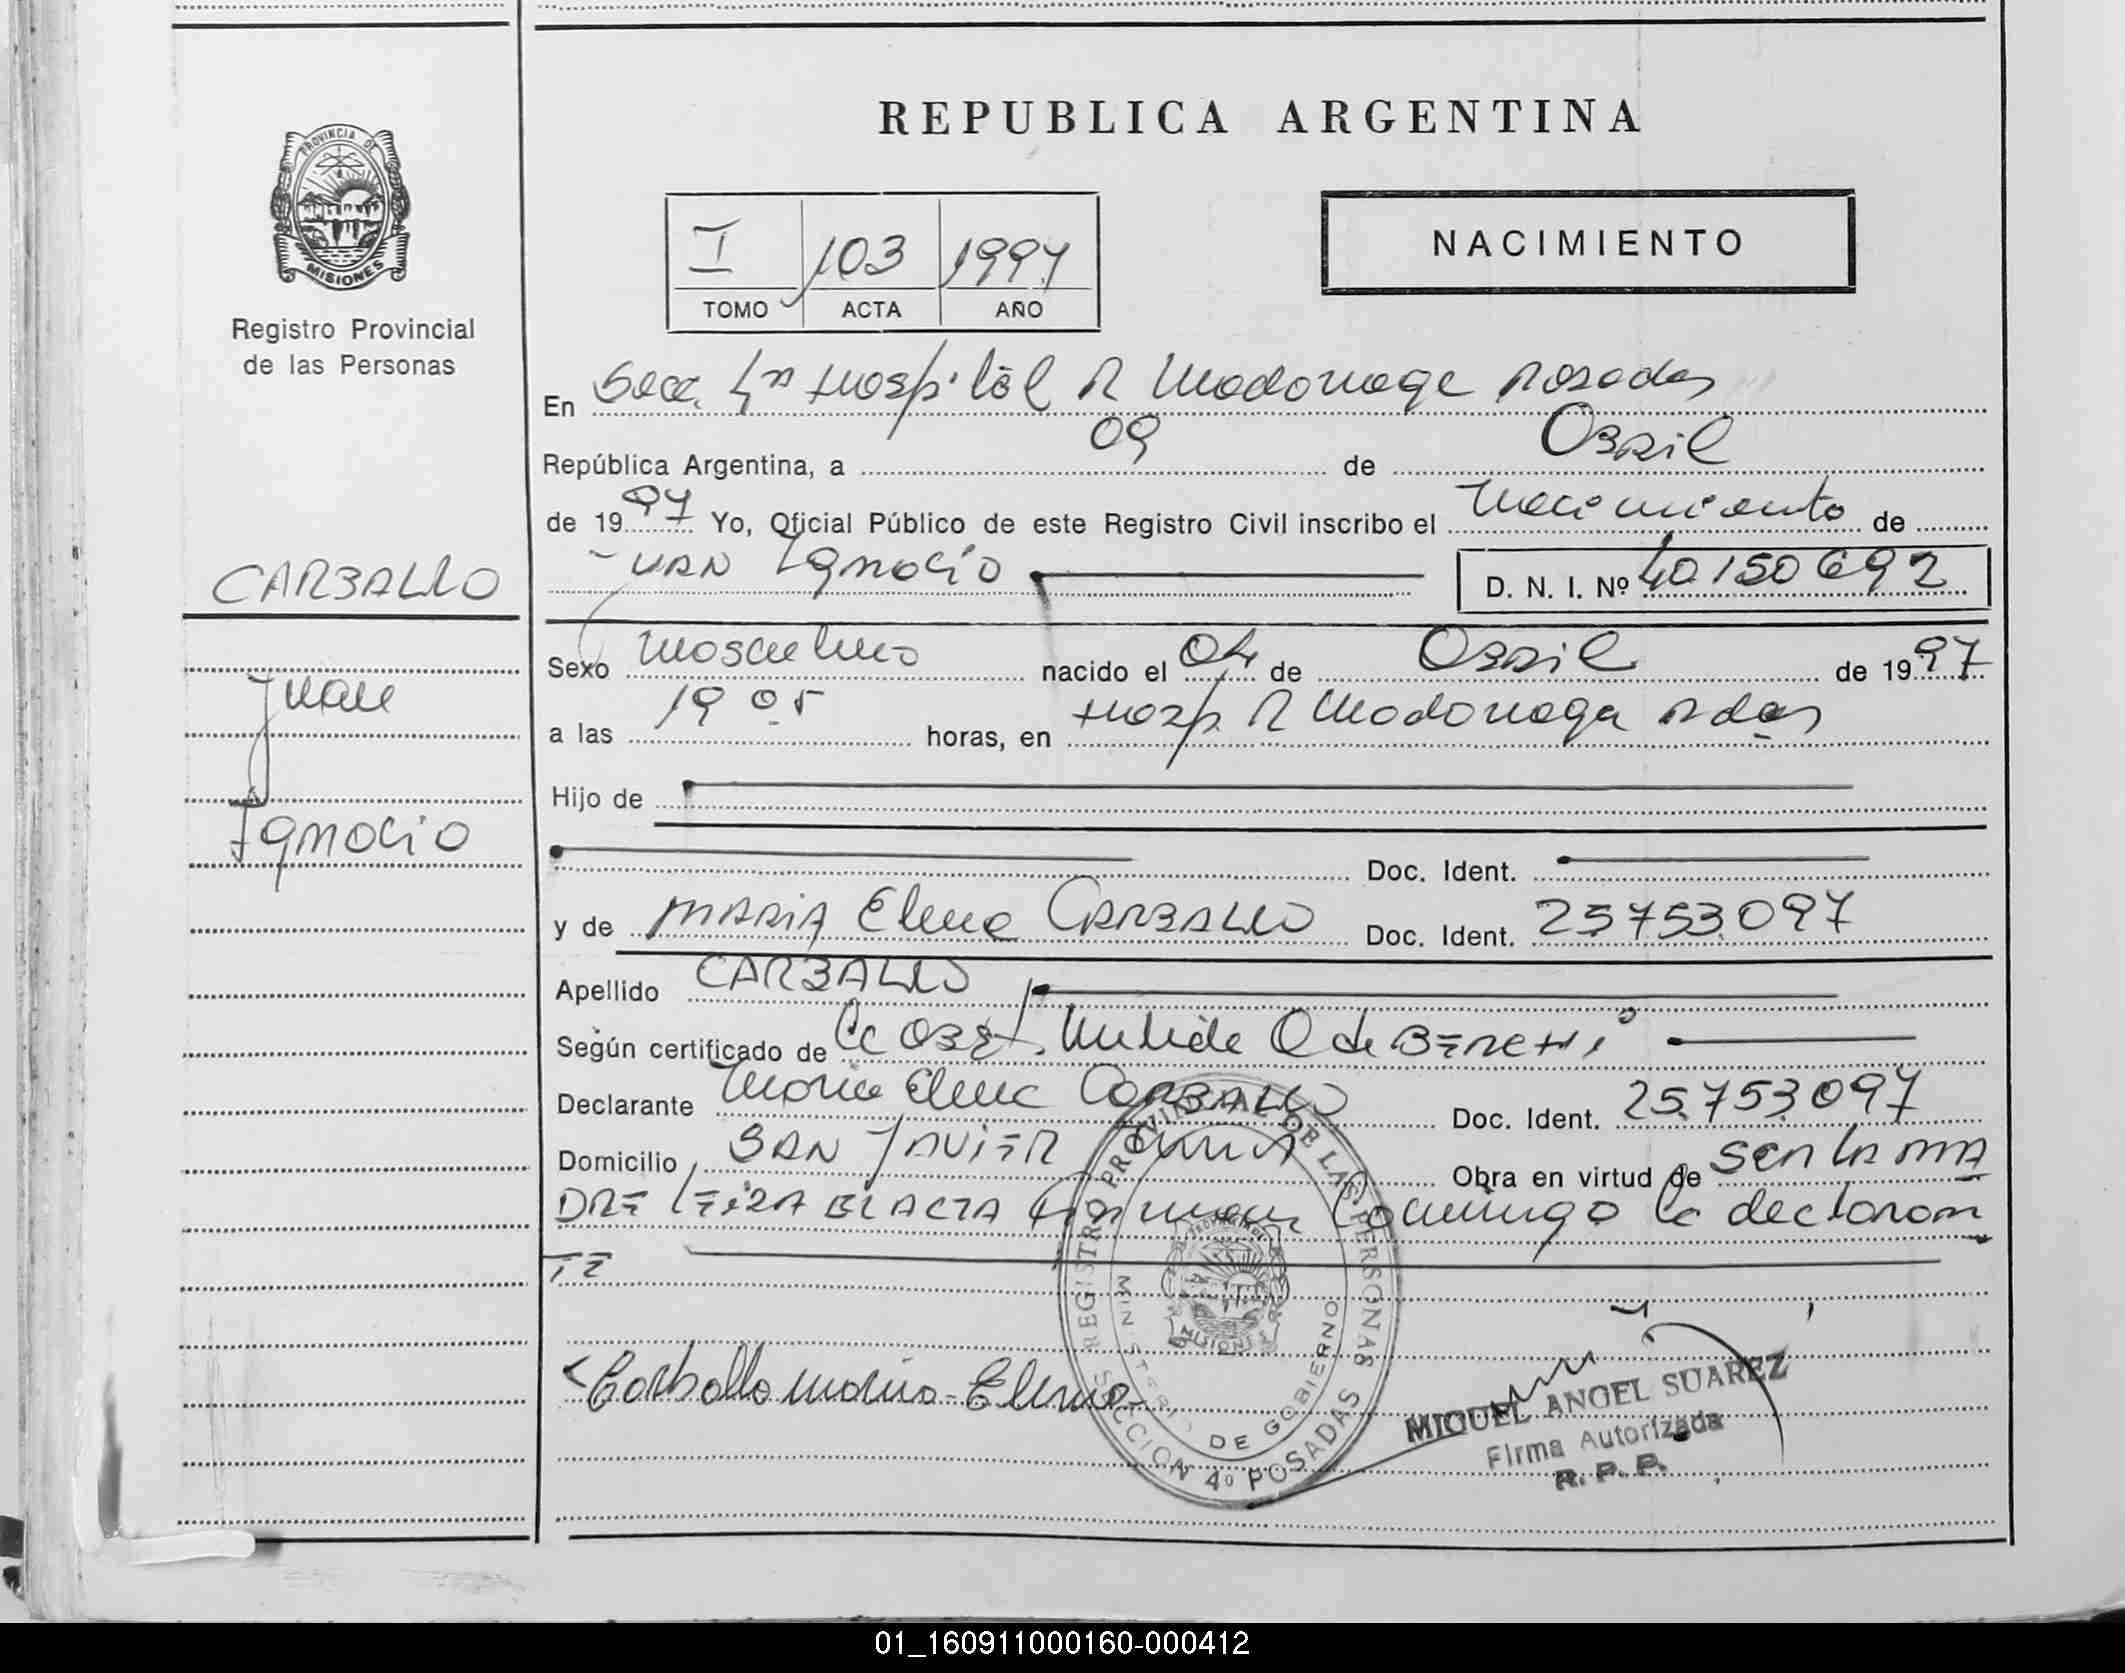 PROVINCIA DE
MISIONES
Registro Provincial
de las Personas
CARBALLO
Juan
Ignacio
REPUBLICA ARGENTINA
I 103 1997
TOMO ACTA AÑO
NACIMIENTO
En Secc. 4ta Hospital R Madariaga Posadas
República Argentina, a 09 de Abril
de 1997 Yo, Oficial Público de este Registro Civil inscribo el Nacimiento de
Juan Ignacio D. N. I. Nº 40.150.692
Sexo Masculino nacido el 04 de Abril de 1997
a las 19 05 horas, en Hosp. R Madariaga Pdas
Hijo de
Doc. Ident.
y de MARIA Elena CARBALLO Doc. Ident. 25.753.097
Apellido CARBALLO
Según certificado de la Obst. Q de
Declarante Maria Elena CARBALLO Doc. Ident. 25.753.097
Domicilio SAN JAVIER Obra en virtud de ser la MA
DRE Leida el ACTA firman conmigo la declaran
te
Carballo Maria Elena
REGISTRO PROVINCIAL DE LAS PERSONAS
MINISTERIO DE GOBIERNO
MISIONES
SECCION 4º POSADAS
MIGUEL ANGEL SUAREZ
Firma Autorizada
R. P. P.
01_160911000160-000412